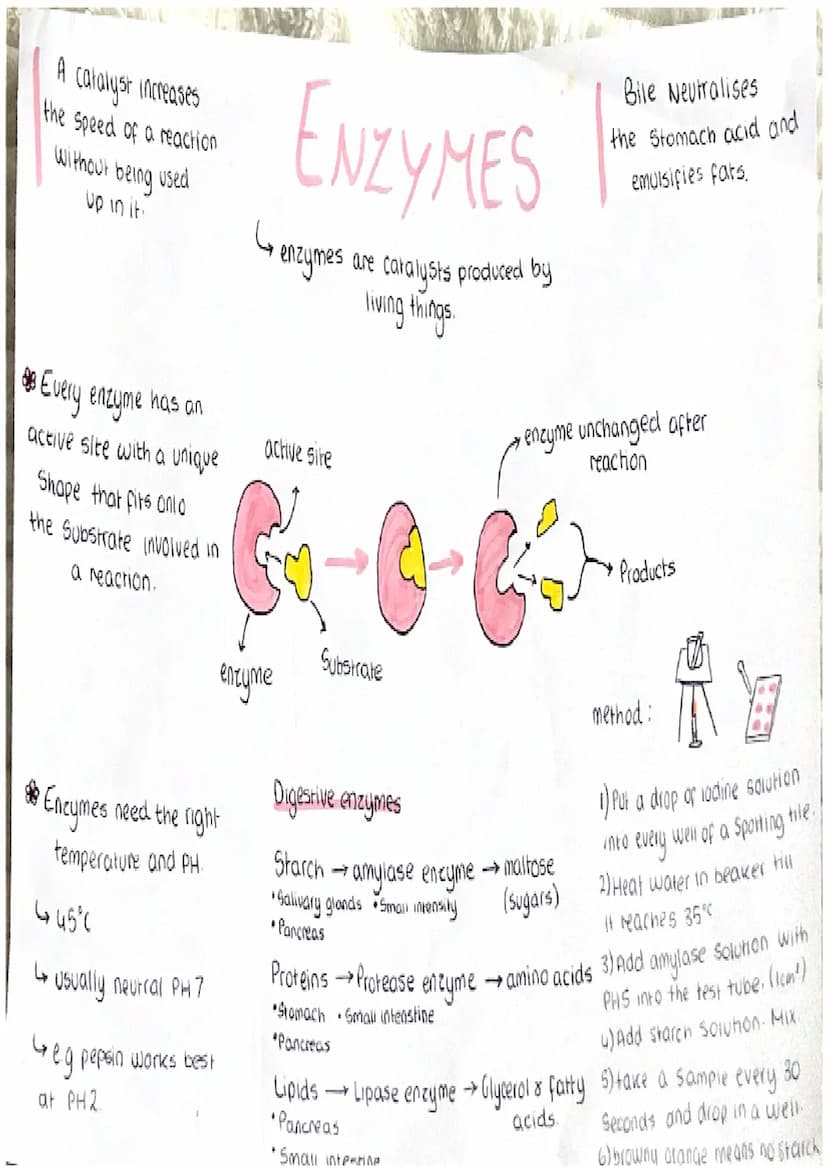 A catalyst increases
the speed of a reaction
without being used
up in it.
ENZYMES
Bile Neutralises
the stomach acid and
emulsifies fats.
↳ enzymes are catalysts produced by
living things.
Every enzyme has an
active site with a unique
Shape that fits onto
the substrate involved in
a reaction.
active site
enzyme
Substrate
enzyme unchanged after
reaction
Products
method:
Enzymes need the right
temperature and PH.
↳ 45°C
↳ usually neutral PH 7
↳ eg pepsin works best
at PH2
Digestive enzymes
Starch → amylase enzyme → maltose
(sugars)
•Salivary glands •Small intensity
•Pancreas
Proteins → Protease enzyme → amino acids
•Stomach •Small intenstine
•Pancreas
Lipids → Lipase enzyme → Glycerol & fatty
acids.
•Pancreas
•Small intenstine
1)Put a drop of iodine solution
into every well of a spotting tile.
2)Heat water in beaker till
it reaches 35°C
3)Add amylase solution with
PH5 into the test tube. (1cm³)
4)Add starch solution. Mix.
5)take a sample every 30
seconds and drop in a well.
6)browny orange means no starch